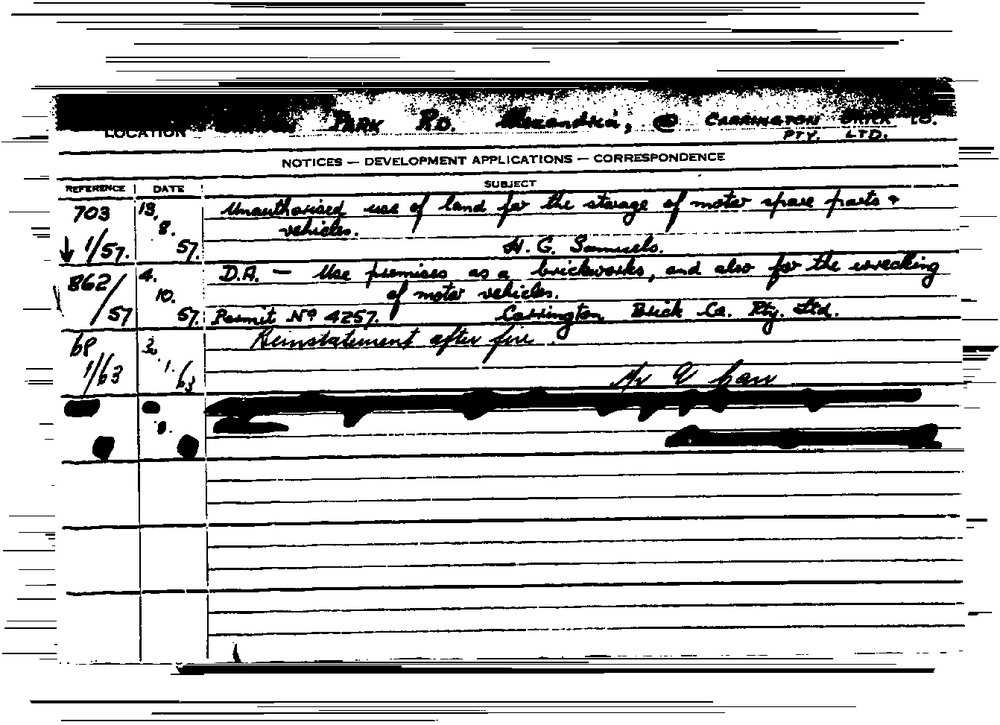 LOCATION PARK RD. Alexandria, @ CARRINGTON BRICK CO.
PTY. LTD.
NOTICES — DEVELOPMENT APPLICATIONS — CORRESPONDENCE
REFERENCE DATE SUBJECT
703 13. Unauthorised use of land for the storage of motor spare parts &
8. vehicles.
1/57. 57. H. G. Samuels.
862/ 4. D.A. — Use premises as a brickworks, and also for the wrecking
10. of motor vehicles.
57 57. Permit Nº 4257. Carrington Brick Co. Pty. Ltd.
68 Reinstatement after fire.
1/63 1. 63 Mr